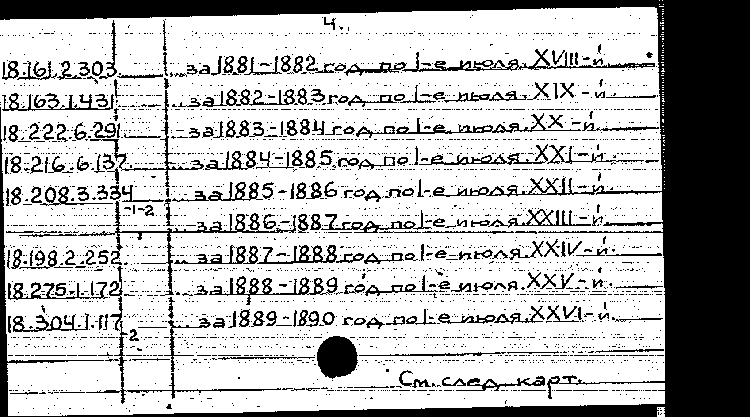 4.
18.161.2.303 ... за 1881-1882 год по 1-е июля. XVIII-й.
18.163.1.431 ... за 1882-1883 год по 1-е июля. XIX-й.
18.222.6.291 -за 1883-1884 год по 1-е июля. XX-й.
18.216.6.137 ... за 1884-1885 год по 1-е июля. XXI-й.
18.208.3.334 за 1885-1886 год по 1-е июля. XXII-й.
-1-2
... за 1886-1887 год по 1-е июля. XXIII-й.
18.198.2.252 ... за 1887-1888 год по 1-е июля. XXIV-й.
18.275.1.172 за 1888-1889 год по 1-е июля. XXV-й.
18.304.1.117 ... за 1889-1890 год по 1-е июля. XXVI-й.
-2
См. след. карт.